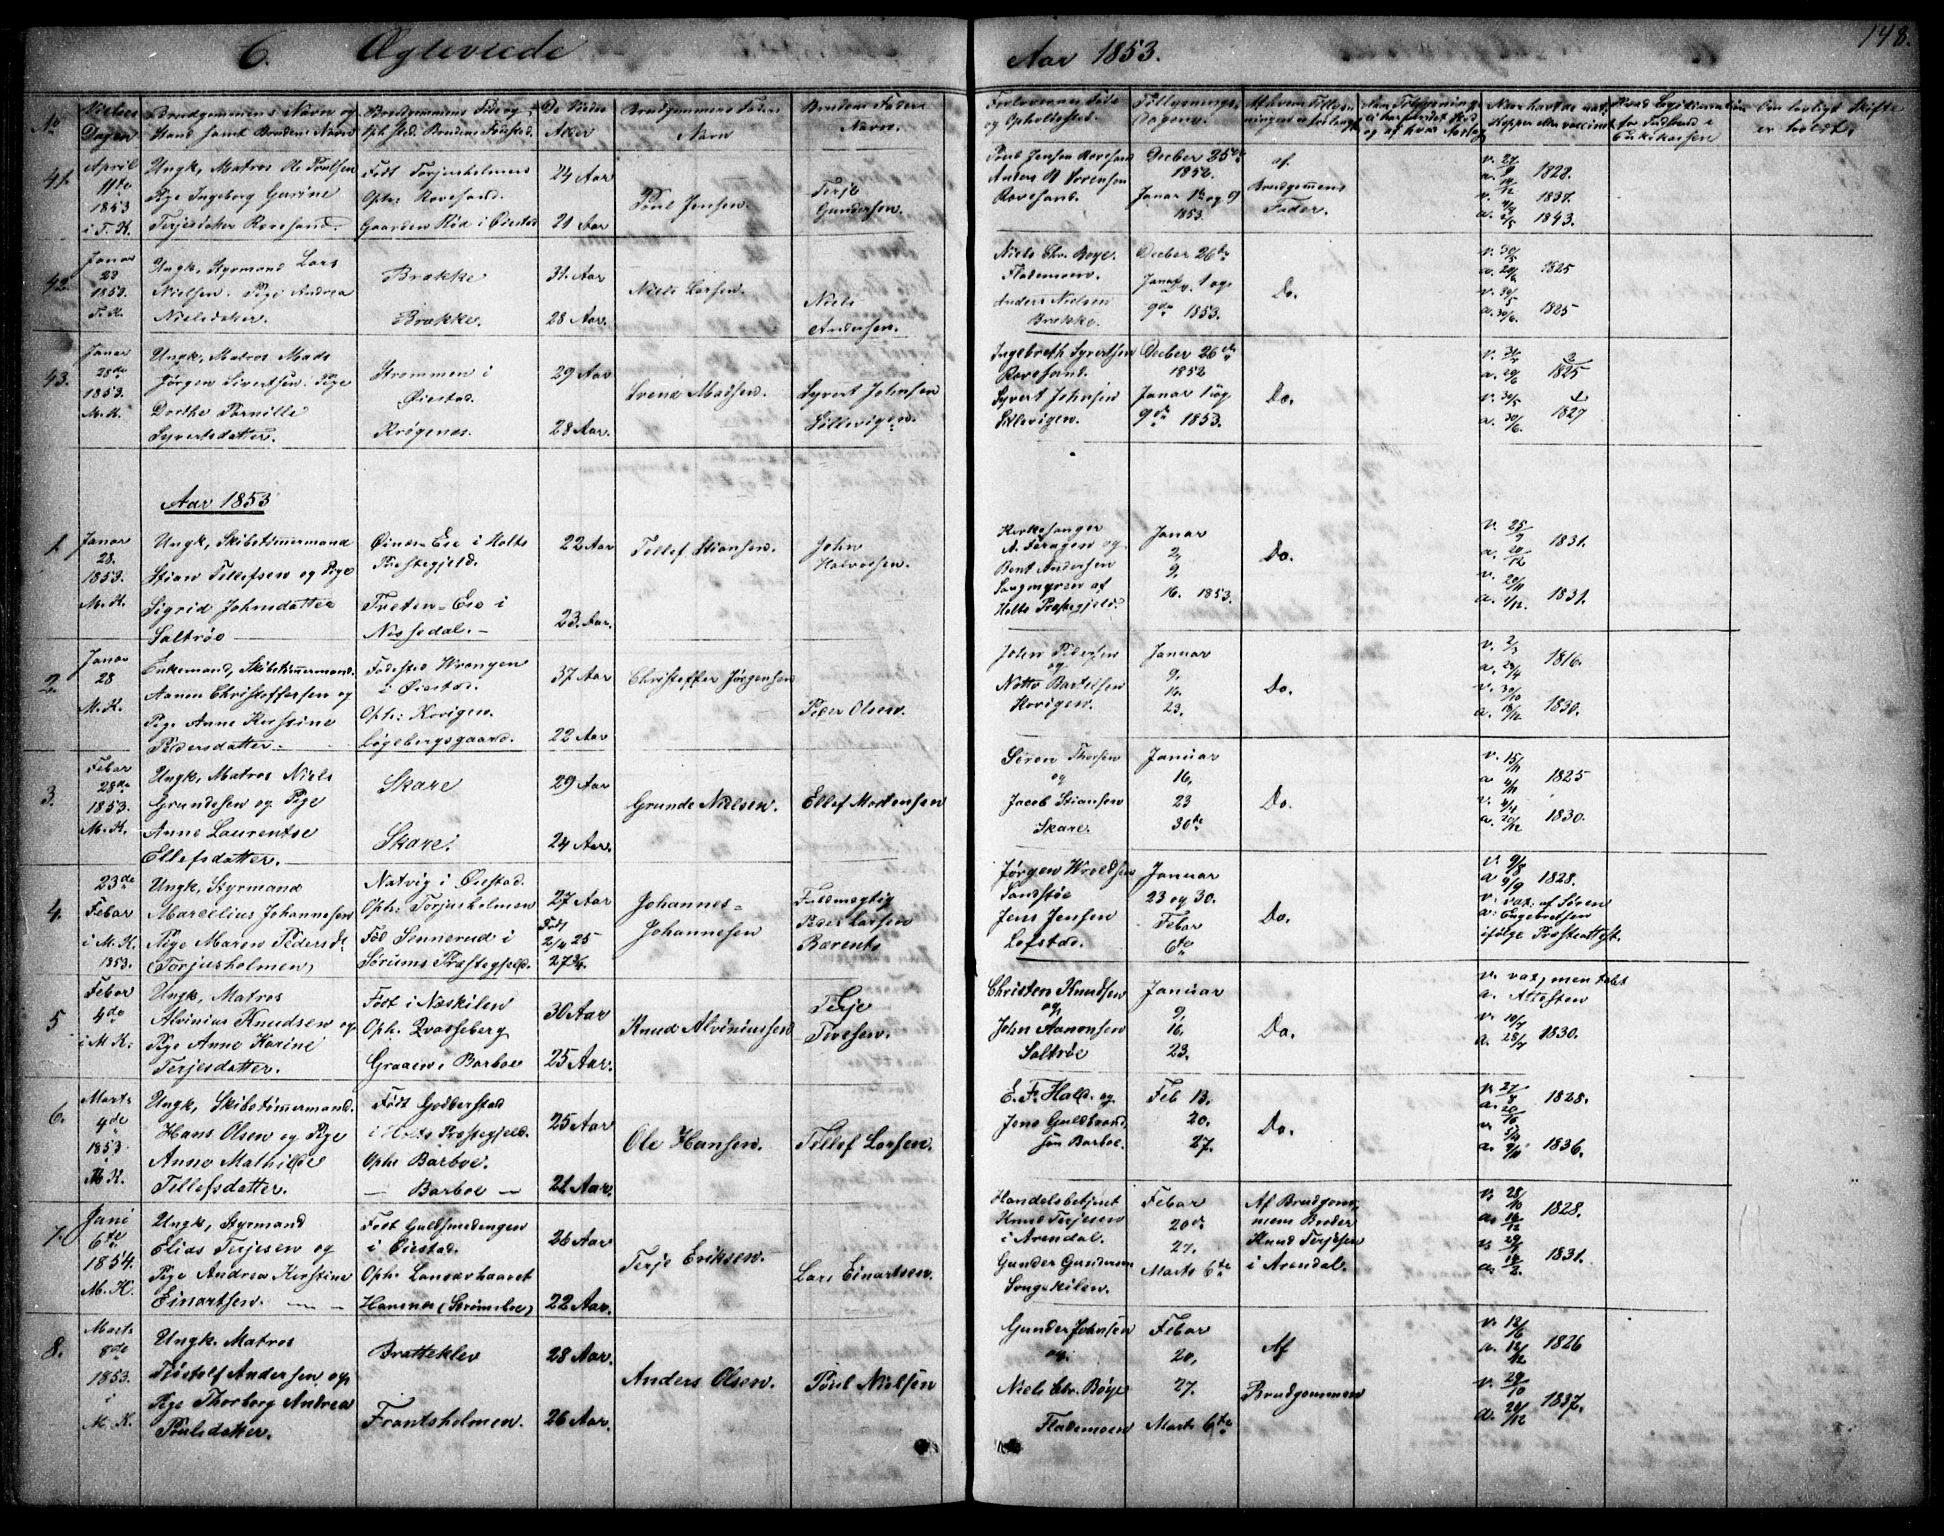 C. Ægteviede
Aar 1853.
148.
No
Vielses Dagen
Brudgommens Navn og Stand samt Brudens Navn
Brudgommens Føde og Opholdssted. Brudens Fødested.
De Viedes Alder
Brudgommens Faders Navn
Brudens Faders Navn.
Forlovernes Navn og Opholdssted.
Tillysnings Dagene.
Af hvem Tillysningen er forlangt
Naar havt de nat. Kopper eller vaccineret
Om lovligt Skifte er holdt.
41.
April
11te
1853
i T. K.
Ungk, Matros Ole Poulsen
Pige Ingeborg Gurine
Terjesdatter Revesand.
Født Torjusholmen
Oph: Revesand.
Gaarden Rød i Øiestad
24 Aar
21 Aar
Poul Jensen.
Terje
Gundersen.
Poul Jensen Revesand
Anders B Sørensen
Revesand.
Decber 26de
1852
Janar 1te og 9
1853.
af
Brudgommens
Fader.
v. 27/8
a. 1822.
v. 1837.
a. 1843.
42.
Janar
23
1853.
T. K.
Ungk, Styrmand Lars
Nielsen. Pige Andrea
Nielsdatter.
Brække
Brække.
31. Aar
28 Aar.
Niels Larsen.
Niels
Andersen.
Niels Chr. Boye.
Flademoen.
Anders Nielsen
Brække.
Decber 26te
Janar 1 og
9de 1853.
Do.
v. 30/5
a. 1825
v. 30/5
a. 30/6. 1825
43.
Janar
28de
1853.
M. K.
Ungk, Matros Mads
Jørgen Sivertsen. Pige
Dorthe Pernille
Syvertsdatter.
Strømmen i
Øiestad.
Krøgenes.
29 Aar
28 Aar.
Svend Madsen.
Syvert Johnsen
Sillevigen.
Ingebreth Syvertsen
Revesand.
Syvert Johnsen
Sillevigen.
Decber 26de
1852
Janar 1 og
9de 1853.
Do.
v.
a. 1825
v. 30/5
a. 30/6. 1827
Aar 1853
1.
Janar
28.
1853.
M. K.
Ungk, Skibstømmermand
Stian Tellefsen og Pige
Sigrid Johnsdatter
Saltrøe
Præstegjeld.
Nissedal.
22 Aar
23. Aar.
Tellef Stiansen.
John
Halvorsen.
Kirkesanger
A. Feragen og
Bent Andersen
Longmyren af
Holts Præstegjeld.
Janar
2,
9,
16. 1853.
Do.
v. 25/9
a. 20/12 1831.
v. 20/11
a. 4/12. 1831.
2.
Janar
28
M. K.
Enkemand, Skibstømmermand.
Aanon Christoffersen og
Pige Anne Kirstine
Pedersdatter.
Fødested Wrengen
i Øiestad.
Oph: Kovigen.
Løgebergsgaard.
37 Aar
22 Aar
Christoffer Jørgensen
Peder Olsen.
John Pedersen
og
Notto Bertelsen
Hovigen.
Januar
9,
16.
23.
Do.
v. 2/3
a. 29/4 1816.
v. 30/10
a. 18/12 1830.
3.
Febar
28de
1853.
M. K.
Ungk, Matros Niels
Grundesen og Pige
Anne Laurentse
Ellefsdatter.
Skare
Skare.
29 Aar
24 Aar.
Grunde Nielsen.
Ellef Mortensen
Søren Thorsen
og
Jacob Stiansen
Skare.
Januar
16,
23
30te
Do.
v. 15/11
a 4/11 1825
v. 4/4
a. 20/12 1830.
4.
23de
Febar
i M. K.
1853.
Ungk, Styrmand
Marcelius Johannesen
Pige Maren Pedersdt
(Torjusholmen)
Natvig i Øiestad.
Oph: Torjusholmen
Fød Sennerud i
Sørums Præstegjeld.
27 Aar
Født
2/4 25
27 3/4.
Johannes
Johannesen
Fuldmegtig
Peder Larsen
Barents
Jørgen Wroldsen
Sandstøe
Jens Jensen
Lofstad.
Januar
23 og 30.
Febar
6te
Do.
v. 9/8
a 9/9 1828.
v: vax. af Søren
a: Engebretsen
ifølge Præsteattest.
5
Febar
4de
i M K:
Ungk, Matros
Alvinius Knudsen og
Pige Anne Karine
Terjesdatter.
Født i Næskilen
Oph: Qvasseberg
Graaen, Barboe
30 Aar
25 Aar.
Knud Alviniussen
Terje
Tovesen.
Christen Knudsen
og,
John Aanonsen
Saltrøe
Januar
9,
16,
23.
Do.
v. vax, men tabt
a. Attesten
v. 10/7
a. 28/7 1830.
6.
Marts
4de
1853
i
M K.
Ungk, Skibstømmermand.
Hans Olsen og Pige
Anne Mathilde
Tellefsdatter.
Født Goderstad
i Holts Præstegjeld.
Oph: Barboe.
— Barboe —
25 Aar
21 Aar.
Ole Hansen.
Tellef Larsen.
E. F. Hald. og
Jens Guldbrand
sen Barboe.
Feb 13.
20.
27.
Do.
v. 27/8
a. 1828.
v
a. 9/11 1836.
7.
Juni
6te
1854.
M. K.
Ungk, Styrmand
Elias Terjesen og
Pige Andrea Kirstine
Einartsen.
Født Guldsmedengen
i Øiestad.
Oph: Langevhaaret
Hansnes (Strømsboe)
26 Aar
22 Aar.
Terje Eriksen.
Lars Einartsen.
Handelsbetjent
Knud Terjesen
i Arendal.
Gunder Gundersen
Songekilen.
Febar
20de
27.
Marts 6te
Af Brudgom-
mens Broder
Knud Terjesen
i Arendal.
v. 28/10
a. 16/12 1828.
v. 29/9
a. 1831.
8.
Marts
8de
1853.
i
M. K.
Ungk. Matros
Tjøstolf Andersen og
Pige Thorborg Andrea
Poulsdatter.
Bratteklev
Frantsholmen.
28 Aar.
26 Aar.
Anders Olsen.
Poul Nielsen
Gunder Johnsen
og.
Niels Chr. Boye
Flademoen
Febar
20,
27.
Marts 6te
Af
Brudgommen
v. 12/6
a. 12/12 1826
v. 29/10
a. 20/12 1837.